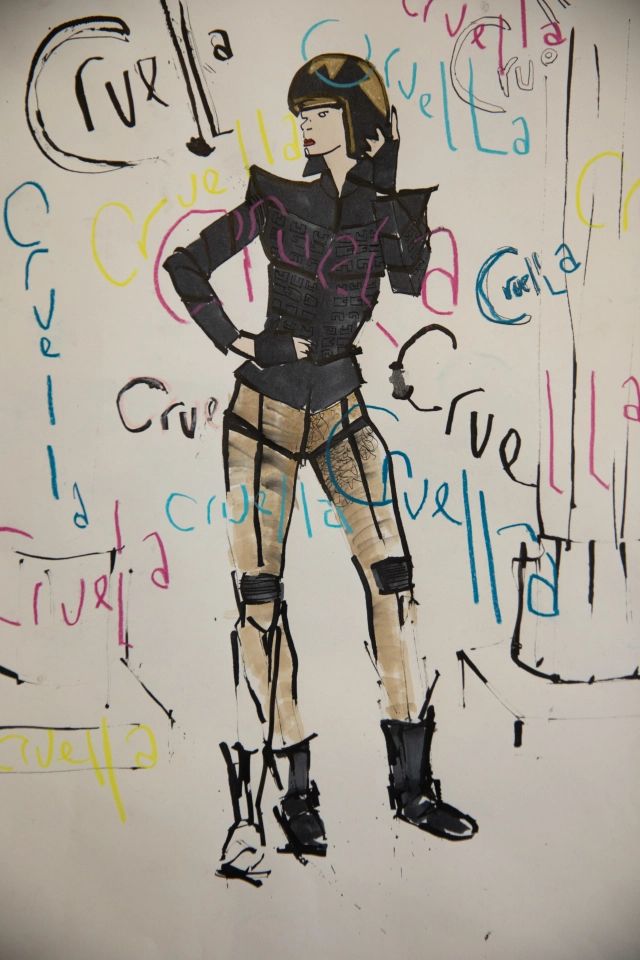 Cruella
Cruella
Cru
Cruella
Cruella
Cruella
C
Cruella
Cruella
Crue
Cruella
Crue
lla
Cruella
Cruella
Cruella
Cruella